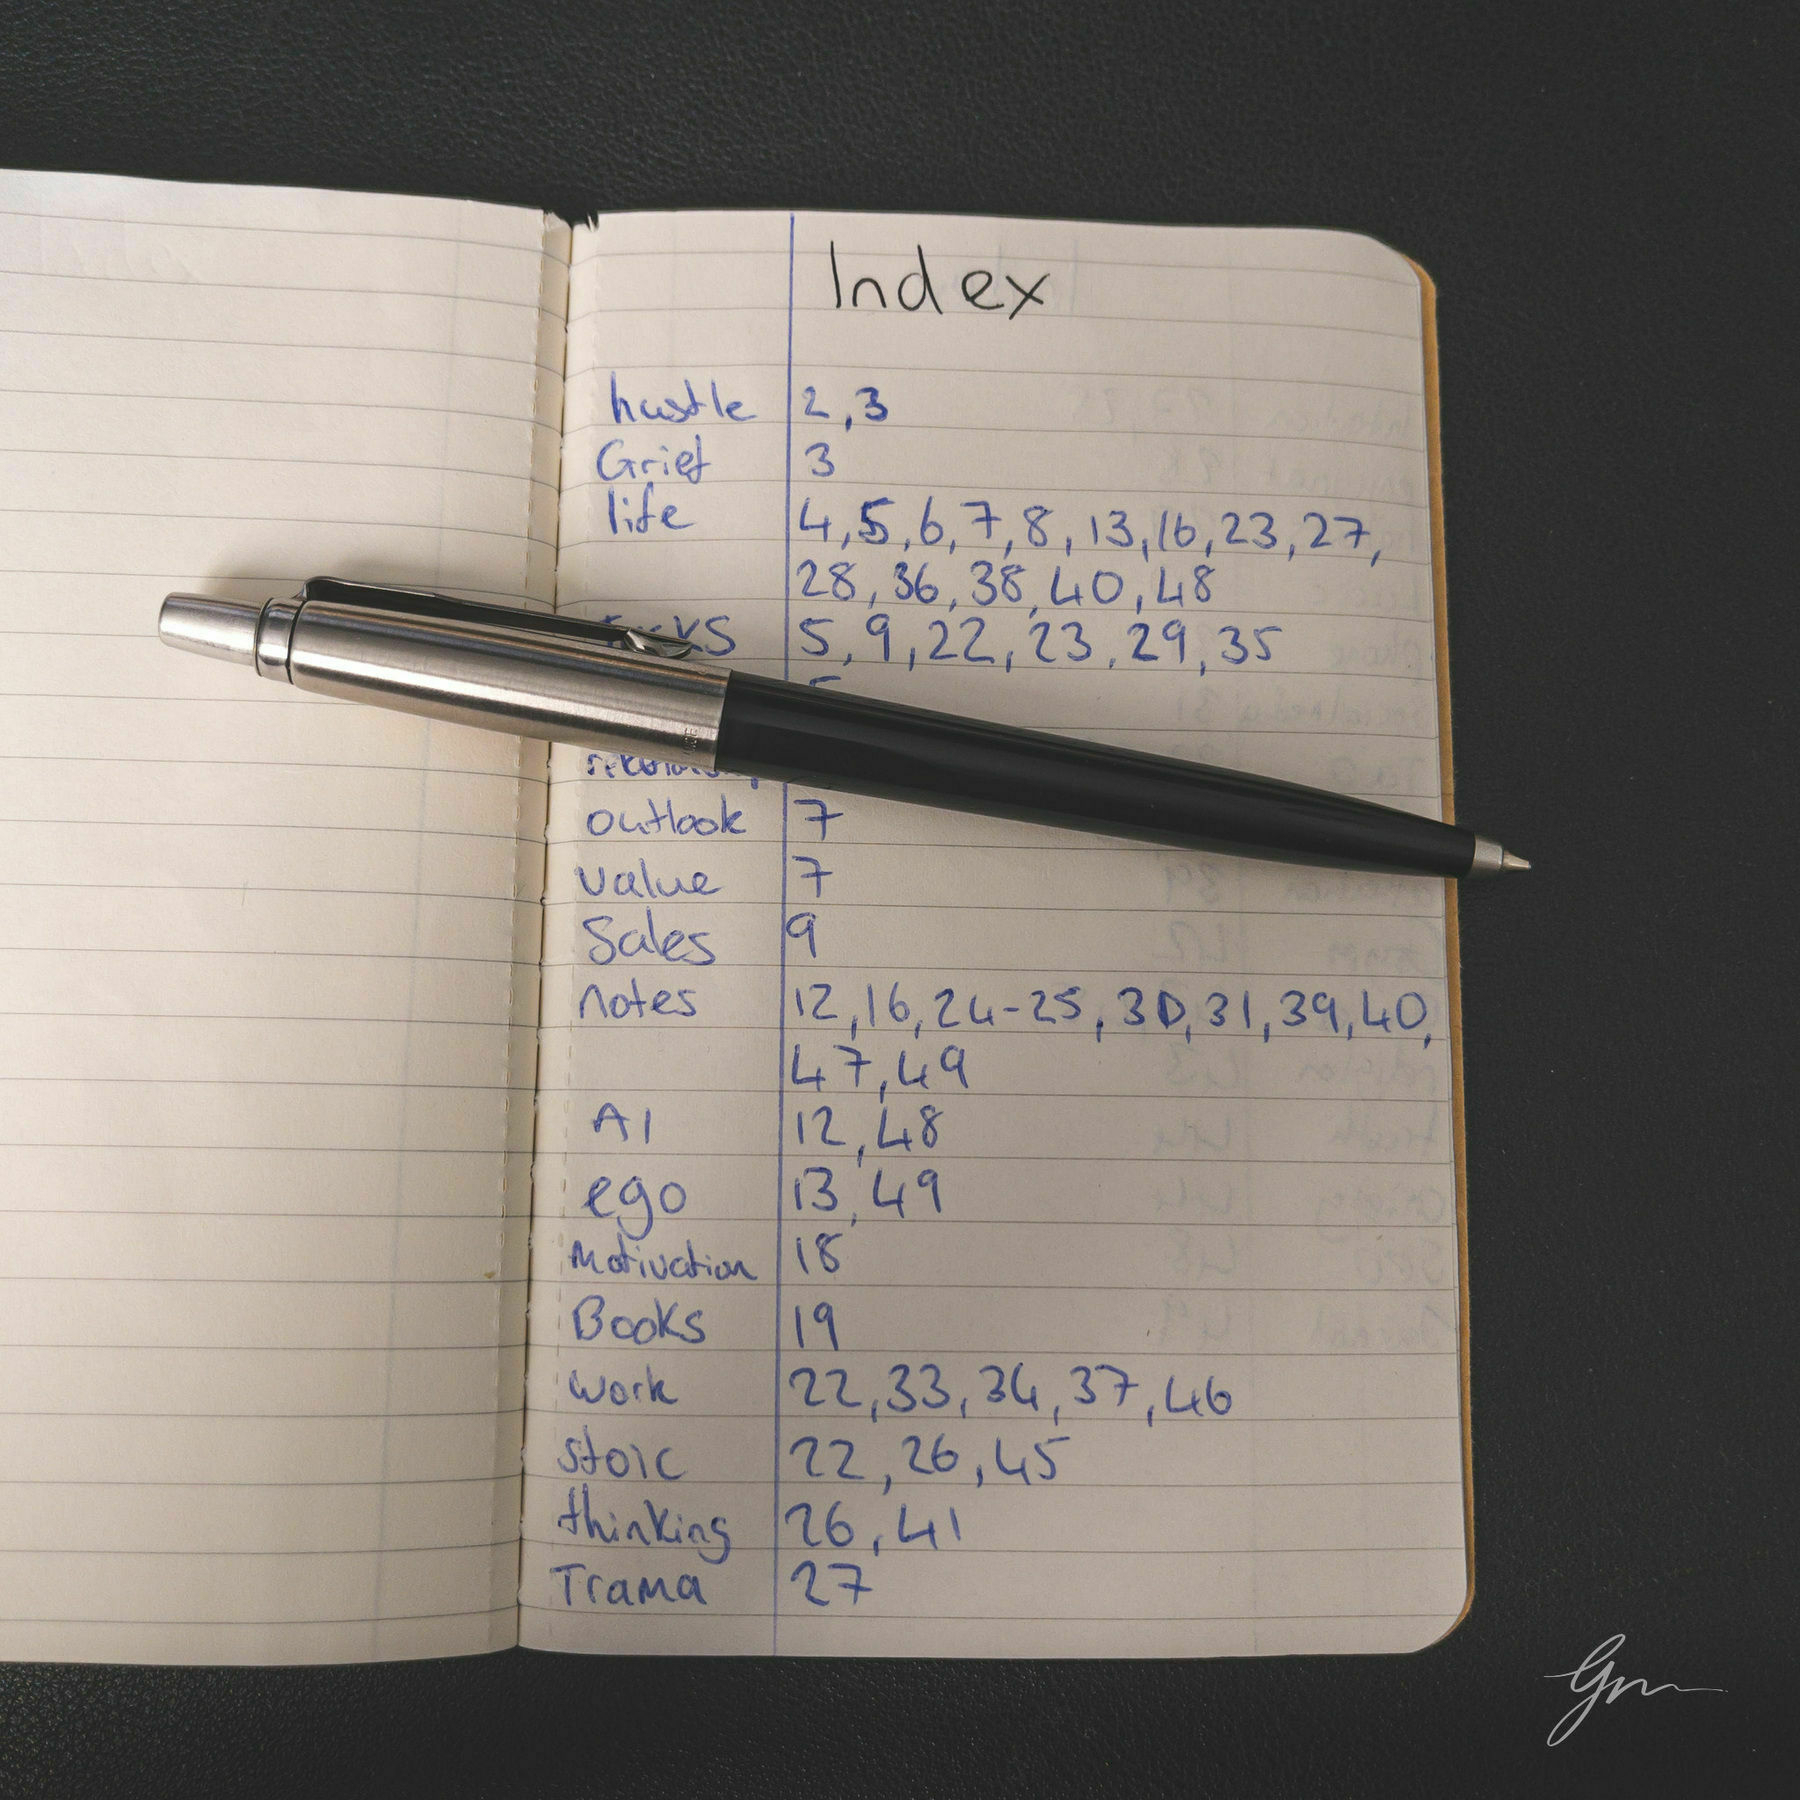 Index
hustle 2,3
Grief 3
life 4,5,6,7,8,13,16,23,27,
28,36,38,40,48
5,9,22,23,29,35
outlook 7
value 7
Sales 9
notes 12,16,24-25,30,31,39,40,
47,49
AI 12,48
ego 13,49
Motivation 18
Books 19
work 22,33,34,37,46
stoic 22,26,45
thinking 26,41
Trama 27